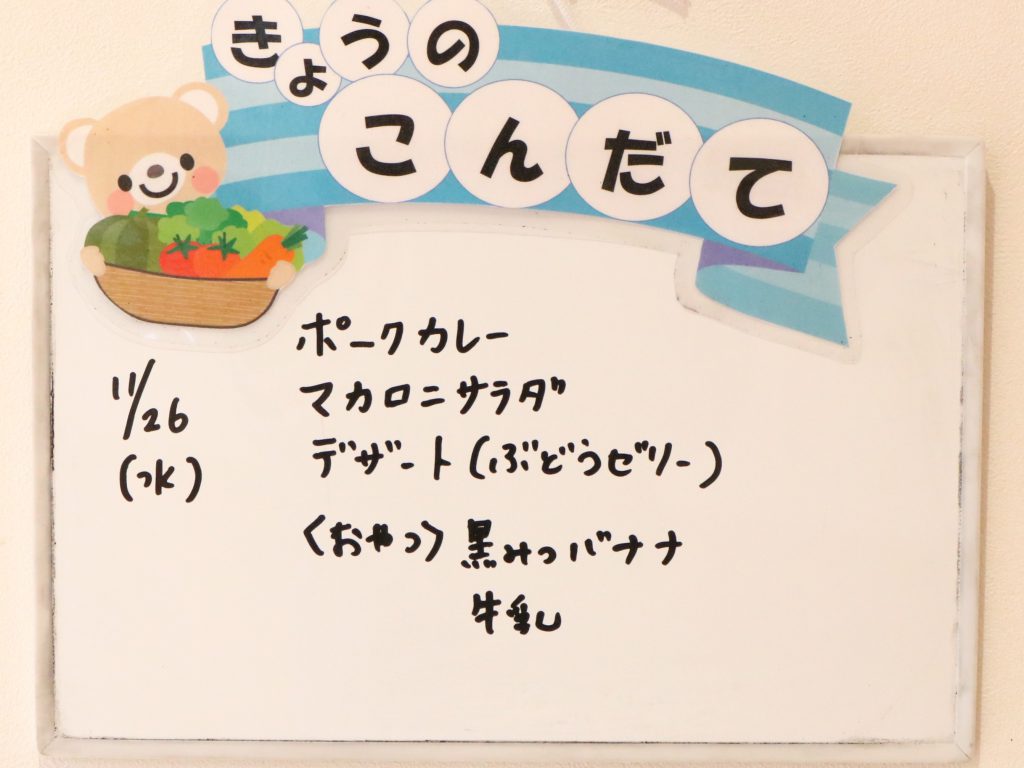 きょうの
こんだて
11/26
(水)
ポークカレー
マカロニサラダ
デザート(ぶどうゼリー)
〈おやつ〉黒みつバナナ
牛乳